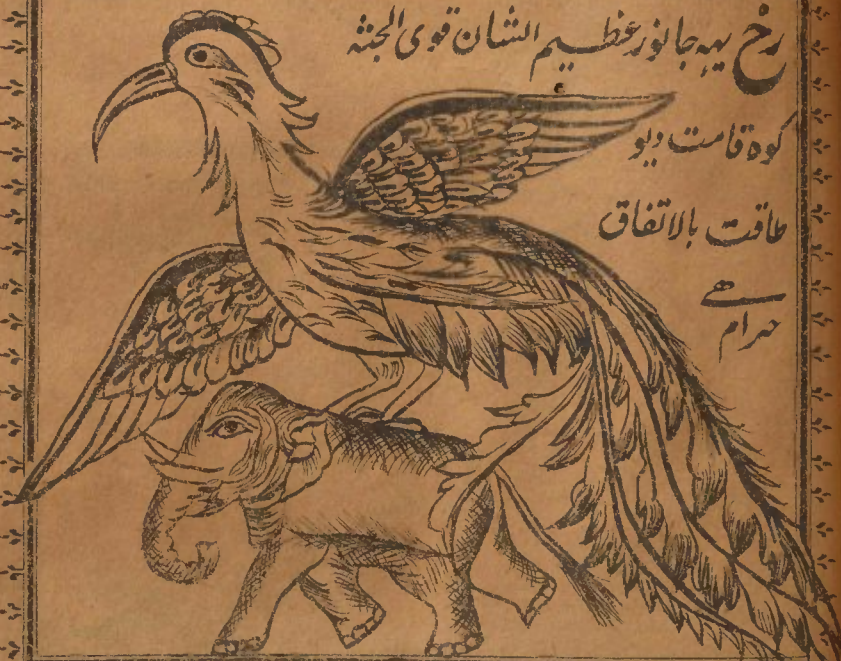 رخ یہہ جانور عظیم الشان قوی الجثہ
کوہ قامت دیو
طاقت بالاتفاق
حرام ھے